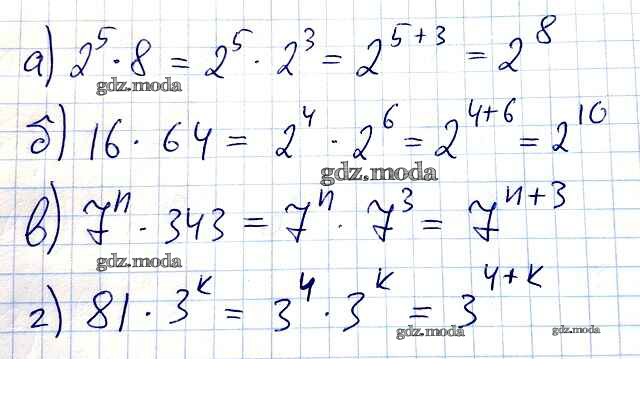 а) 2⁵ · 8 = 2⁵ · 2³ = 2⁵⁺³ = 2⁸
gdz.moda
б) 16 · 64 = 2⁴ · 2⁶ = 2⁴⁺⁶ = 2¹⁰
gdz.moda
в) 7ⁿ · 343 = 7ⁿ · 7³ = 7ⁿ⁺³
gdz.moda
г) 81 · 3ᵏ = 3⁴ · 3ᵏ = 3⁴⁺ᵏ
gdz.moda gdz.moda